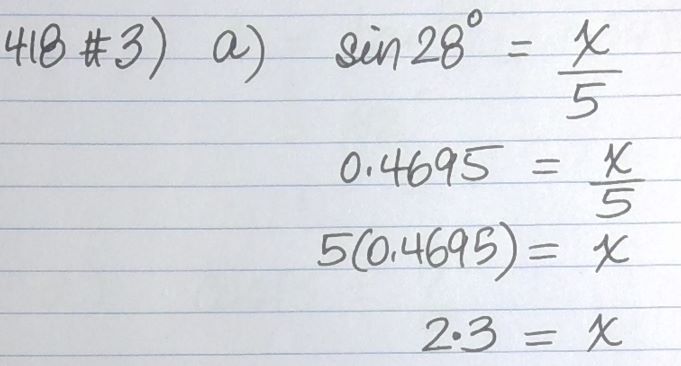 418 #3) a) sin 28° = x/5
0.4695 = x/5
5(0.4695) = x
2.3 = x